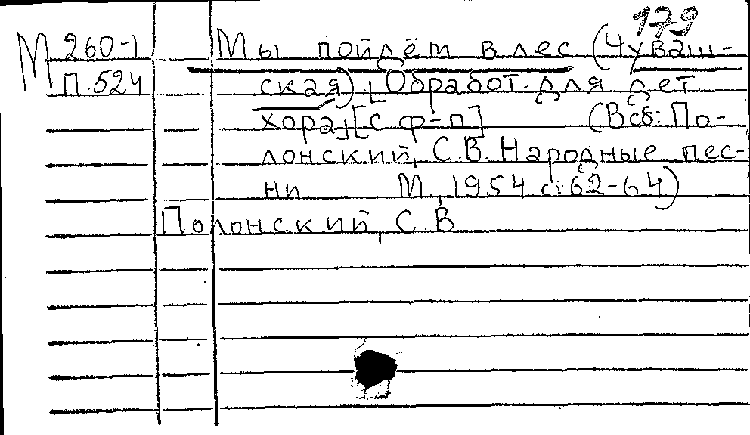 179
М 260-1 Мы пойдём в лес (Чуваш-
П.524 ская) [Обработ. для дет
хора] [с ф-п] (В сб: По-
лонский, С.В. Народные пес-
ни М, 1954 с. 62-64)
Полонский, С В